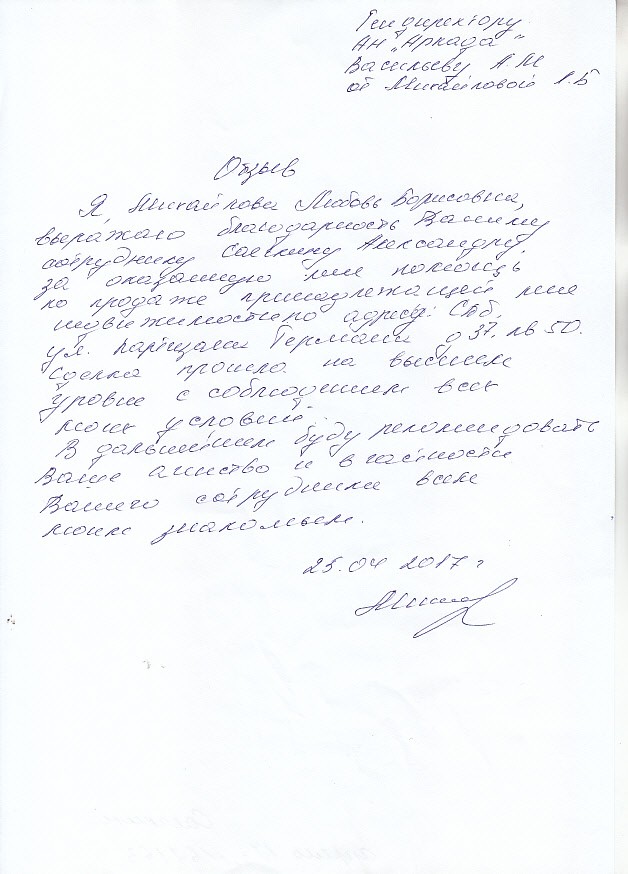 Гендиректору
АН "Аркада"
Васильеву А.М
от Михайловой Л.Б
Отзыв
Я, Михайлова Любовь Борисовна,
выражаю благодарность Вашему
сотруднику Саенкину Александру,
за оказанную мне помощь
по продаже принадлежащей мне
недвижимости по адресу: СПб.
ул. Партизана Германа д 37. кв 50.
Сделка прошла на высшем
уровне с соблюдением всех
моих условий.
В дальнейшем буду рекомендовать
Ваше агинство и в частности
Вашего сотрудника всем
моим знакомым.
25.04 2017 г